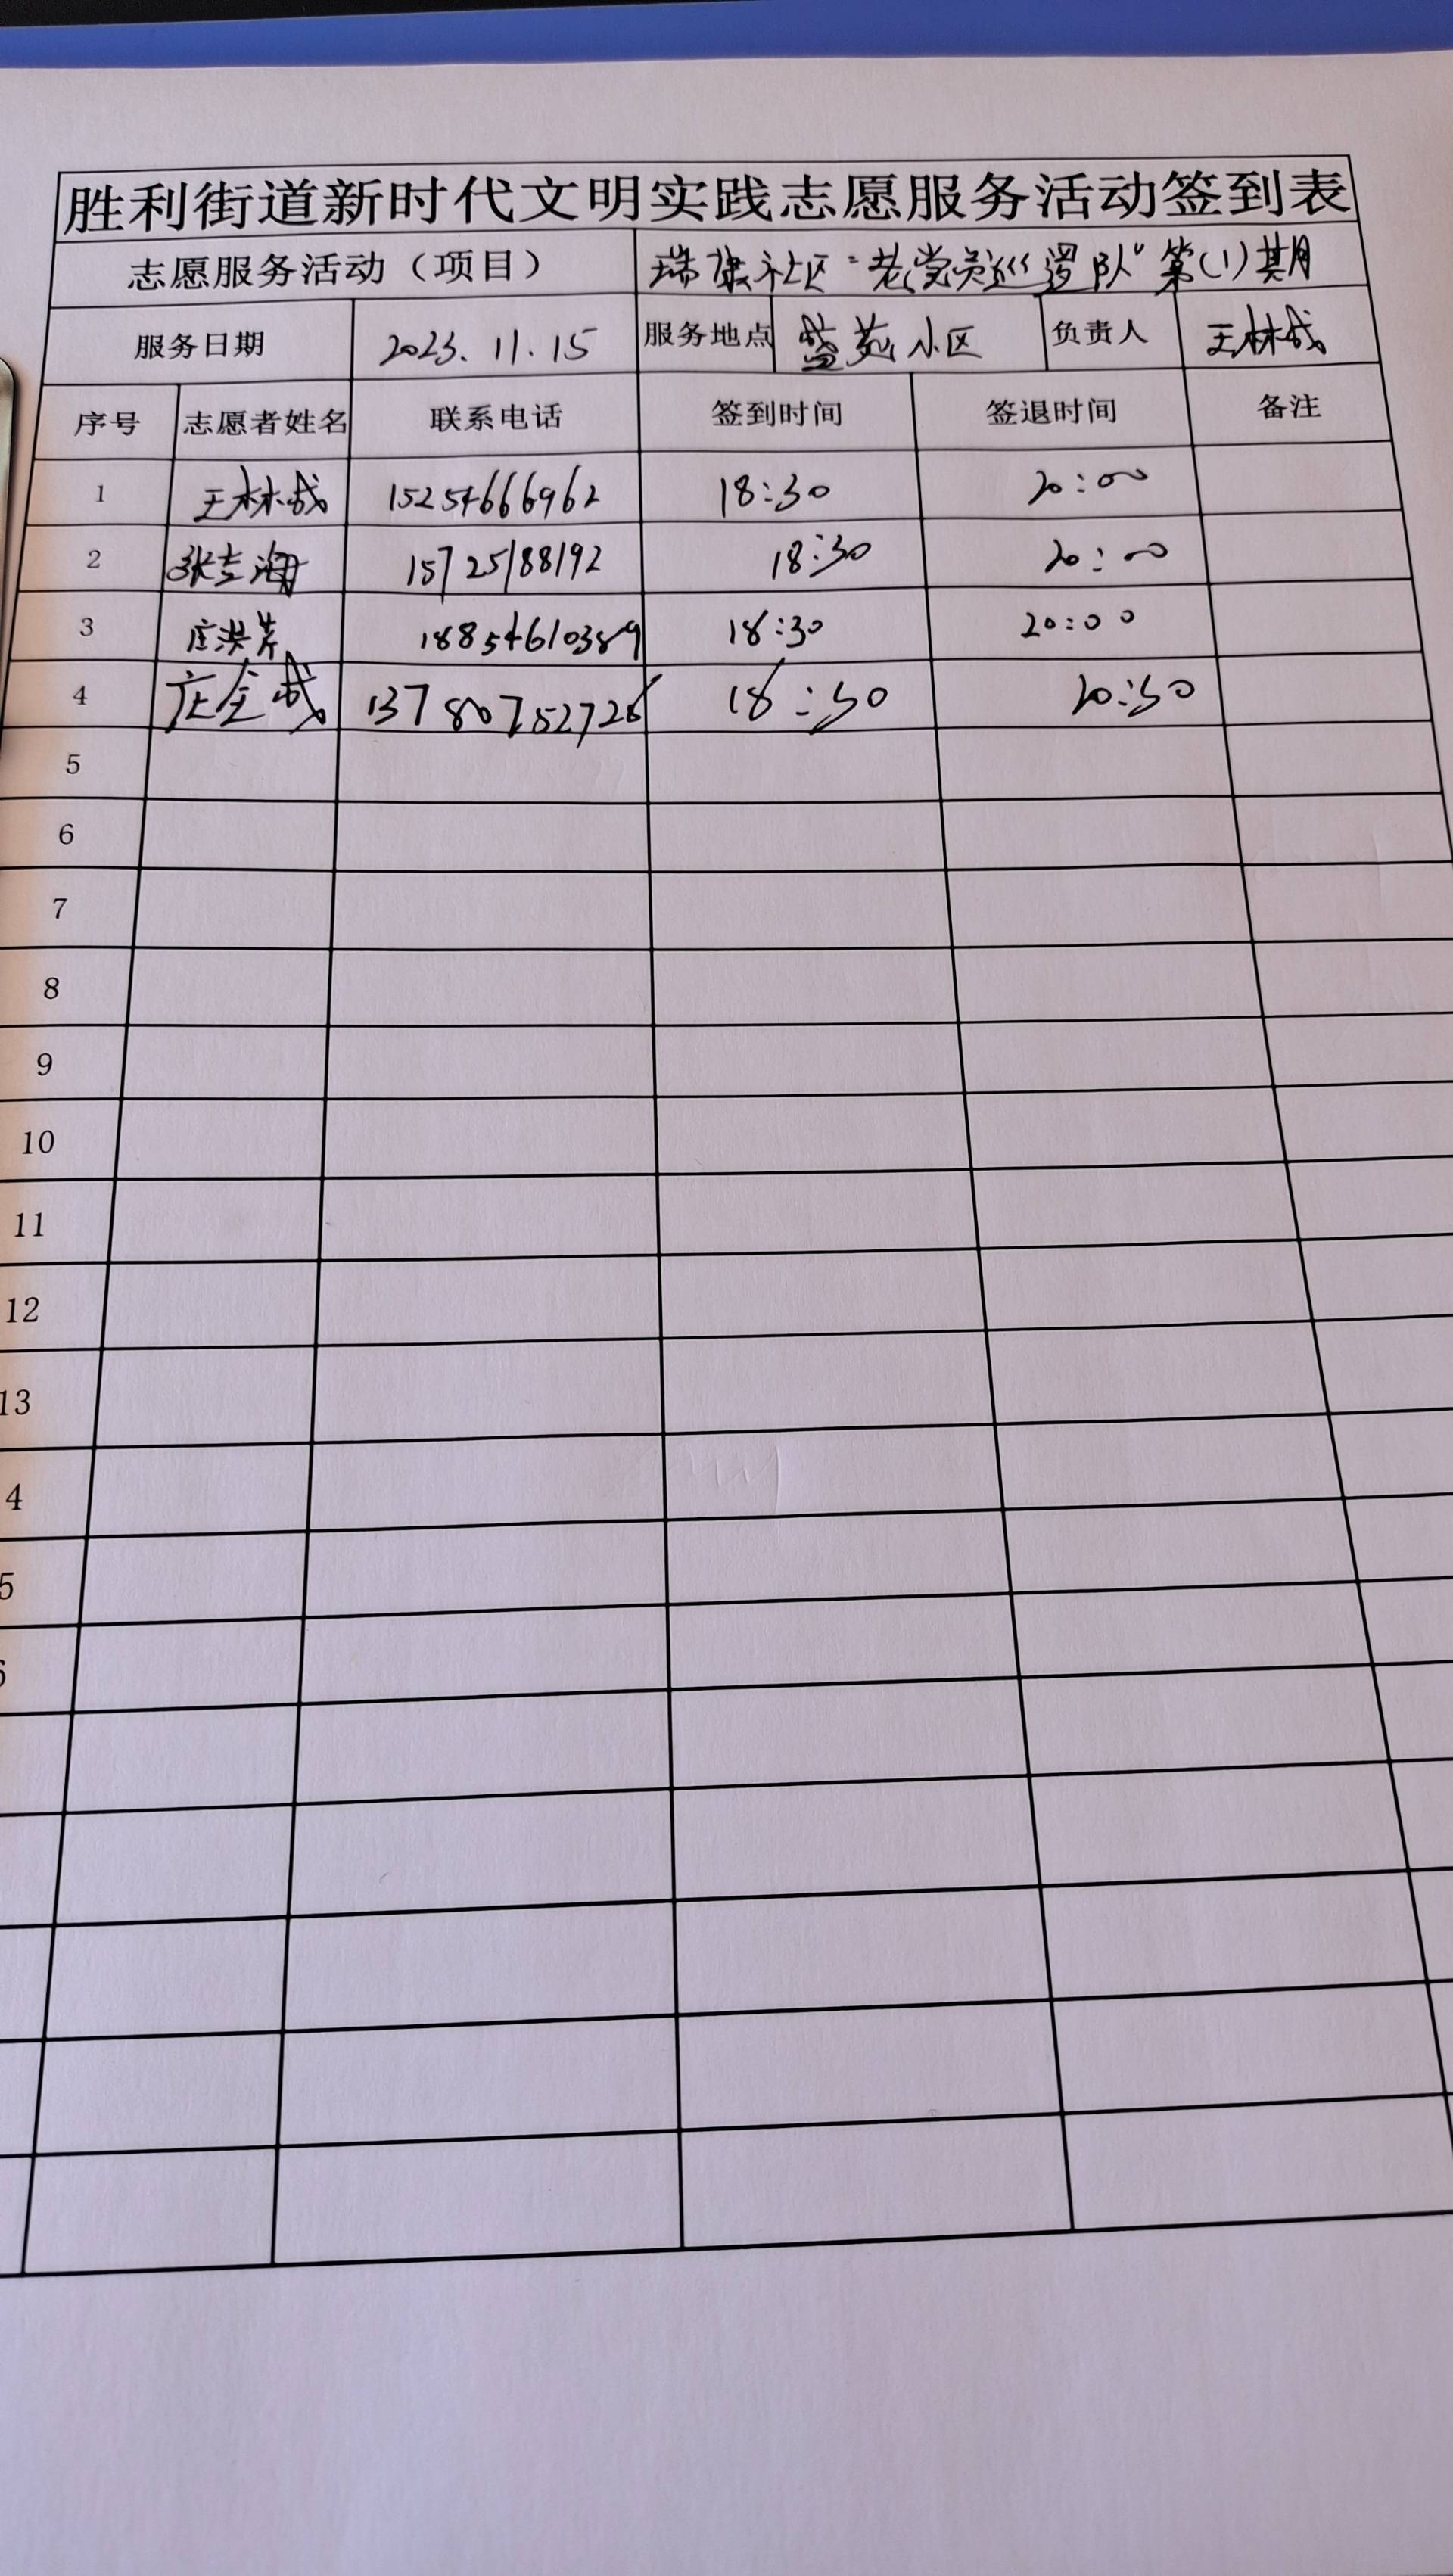 胜利街道新时代文明实践志愿服务活动签到表
志愿服务活动（项目） 瑞康社区“老党员巡逻队”第(1)期
服务日期 2023.11.15 服务地点 盛苑小区 负责人 王林成
序号 志愿者姓名 联系电话 签到时间 签退时间 备注
1 王林成 15254666962 18:30 20:00
2 15725188192 18:30 20:00
3 庄洪芹 18854610389 18:30 20:00
4 庄全成 18:30 20:30
5
6
7
8
9
10
11
12
13
4
5